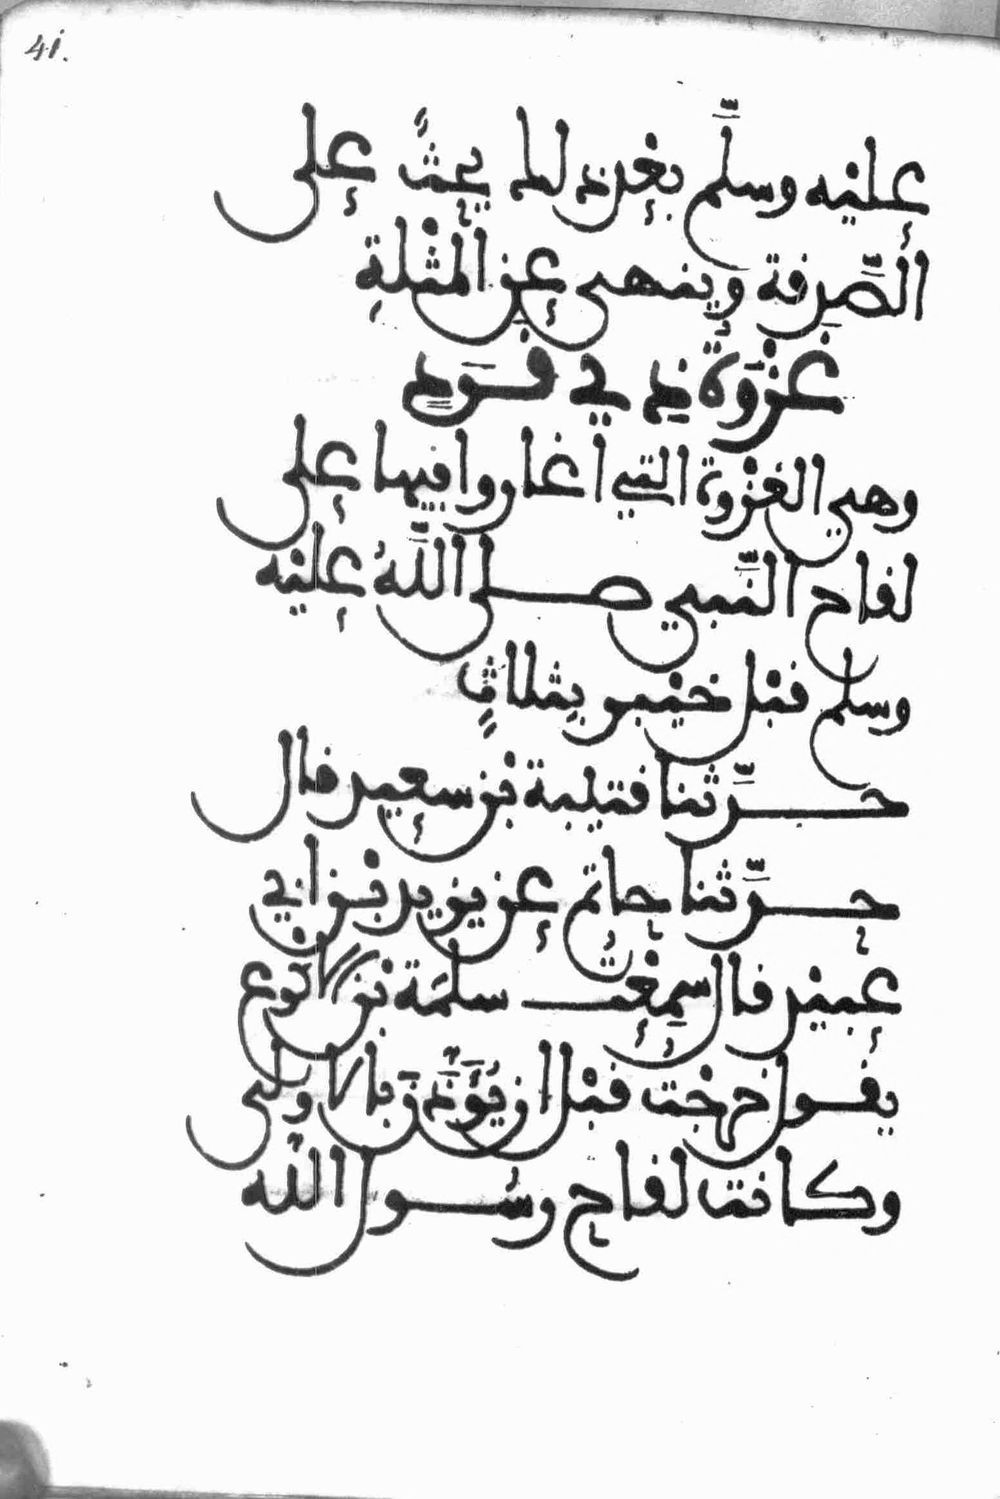 41.
عليْه وسلَّم بعْد ذلك يحثُّ على
الصَّدفة وينهى عن المثْلةِ
غزْوَةُ ذي فَرَد
وهي الغزْوة التي اغاروا فيها على
لفاح النَّبي صلى اللَّهُ عليْه
وسلم قبْل خيْبر بثلاثٍ
حدَّثنا فتيبة بْن سعيد فال
حدَّثنا حاتم عن يزيد بْن ابي
عبيْد فال سمِعْت سلمَة بْن الاكْوع
يفول خرجْت قبْل ان يُوَذَّنَ بالاولى
وكانت لفاح رسُول اللَّه